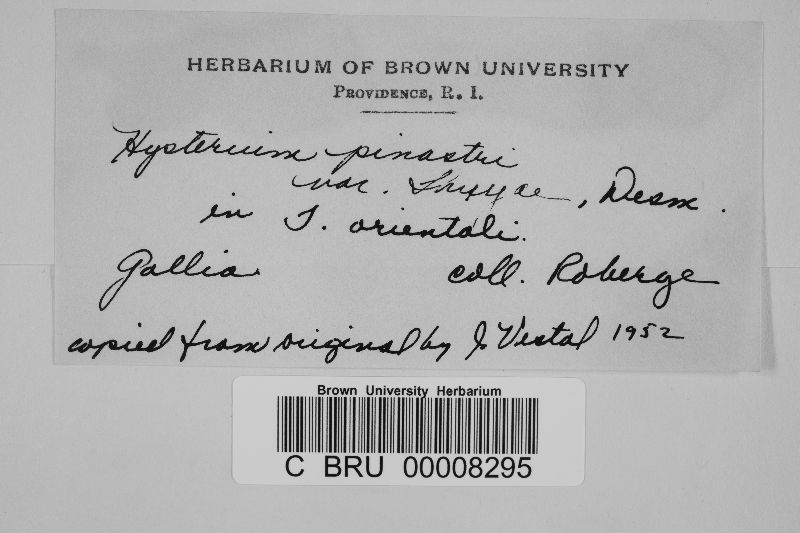 HERBARIUM OF BROWN UNIVERSITY
PROVIDENCE, R. I.
Hysterium pinastri
var. , Desm.
in T. orientali.
Gallia. coll. Roberge
copied from original by J. Vestal 1952
Brown University Herbarium
C BRU 00008295